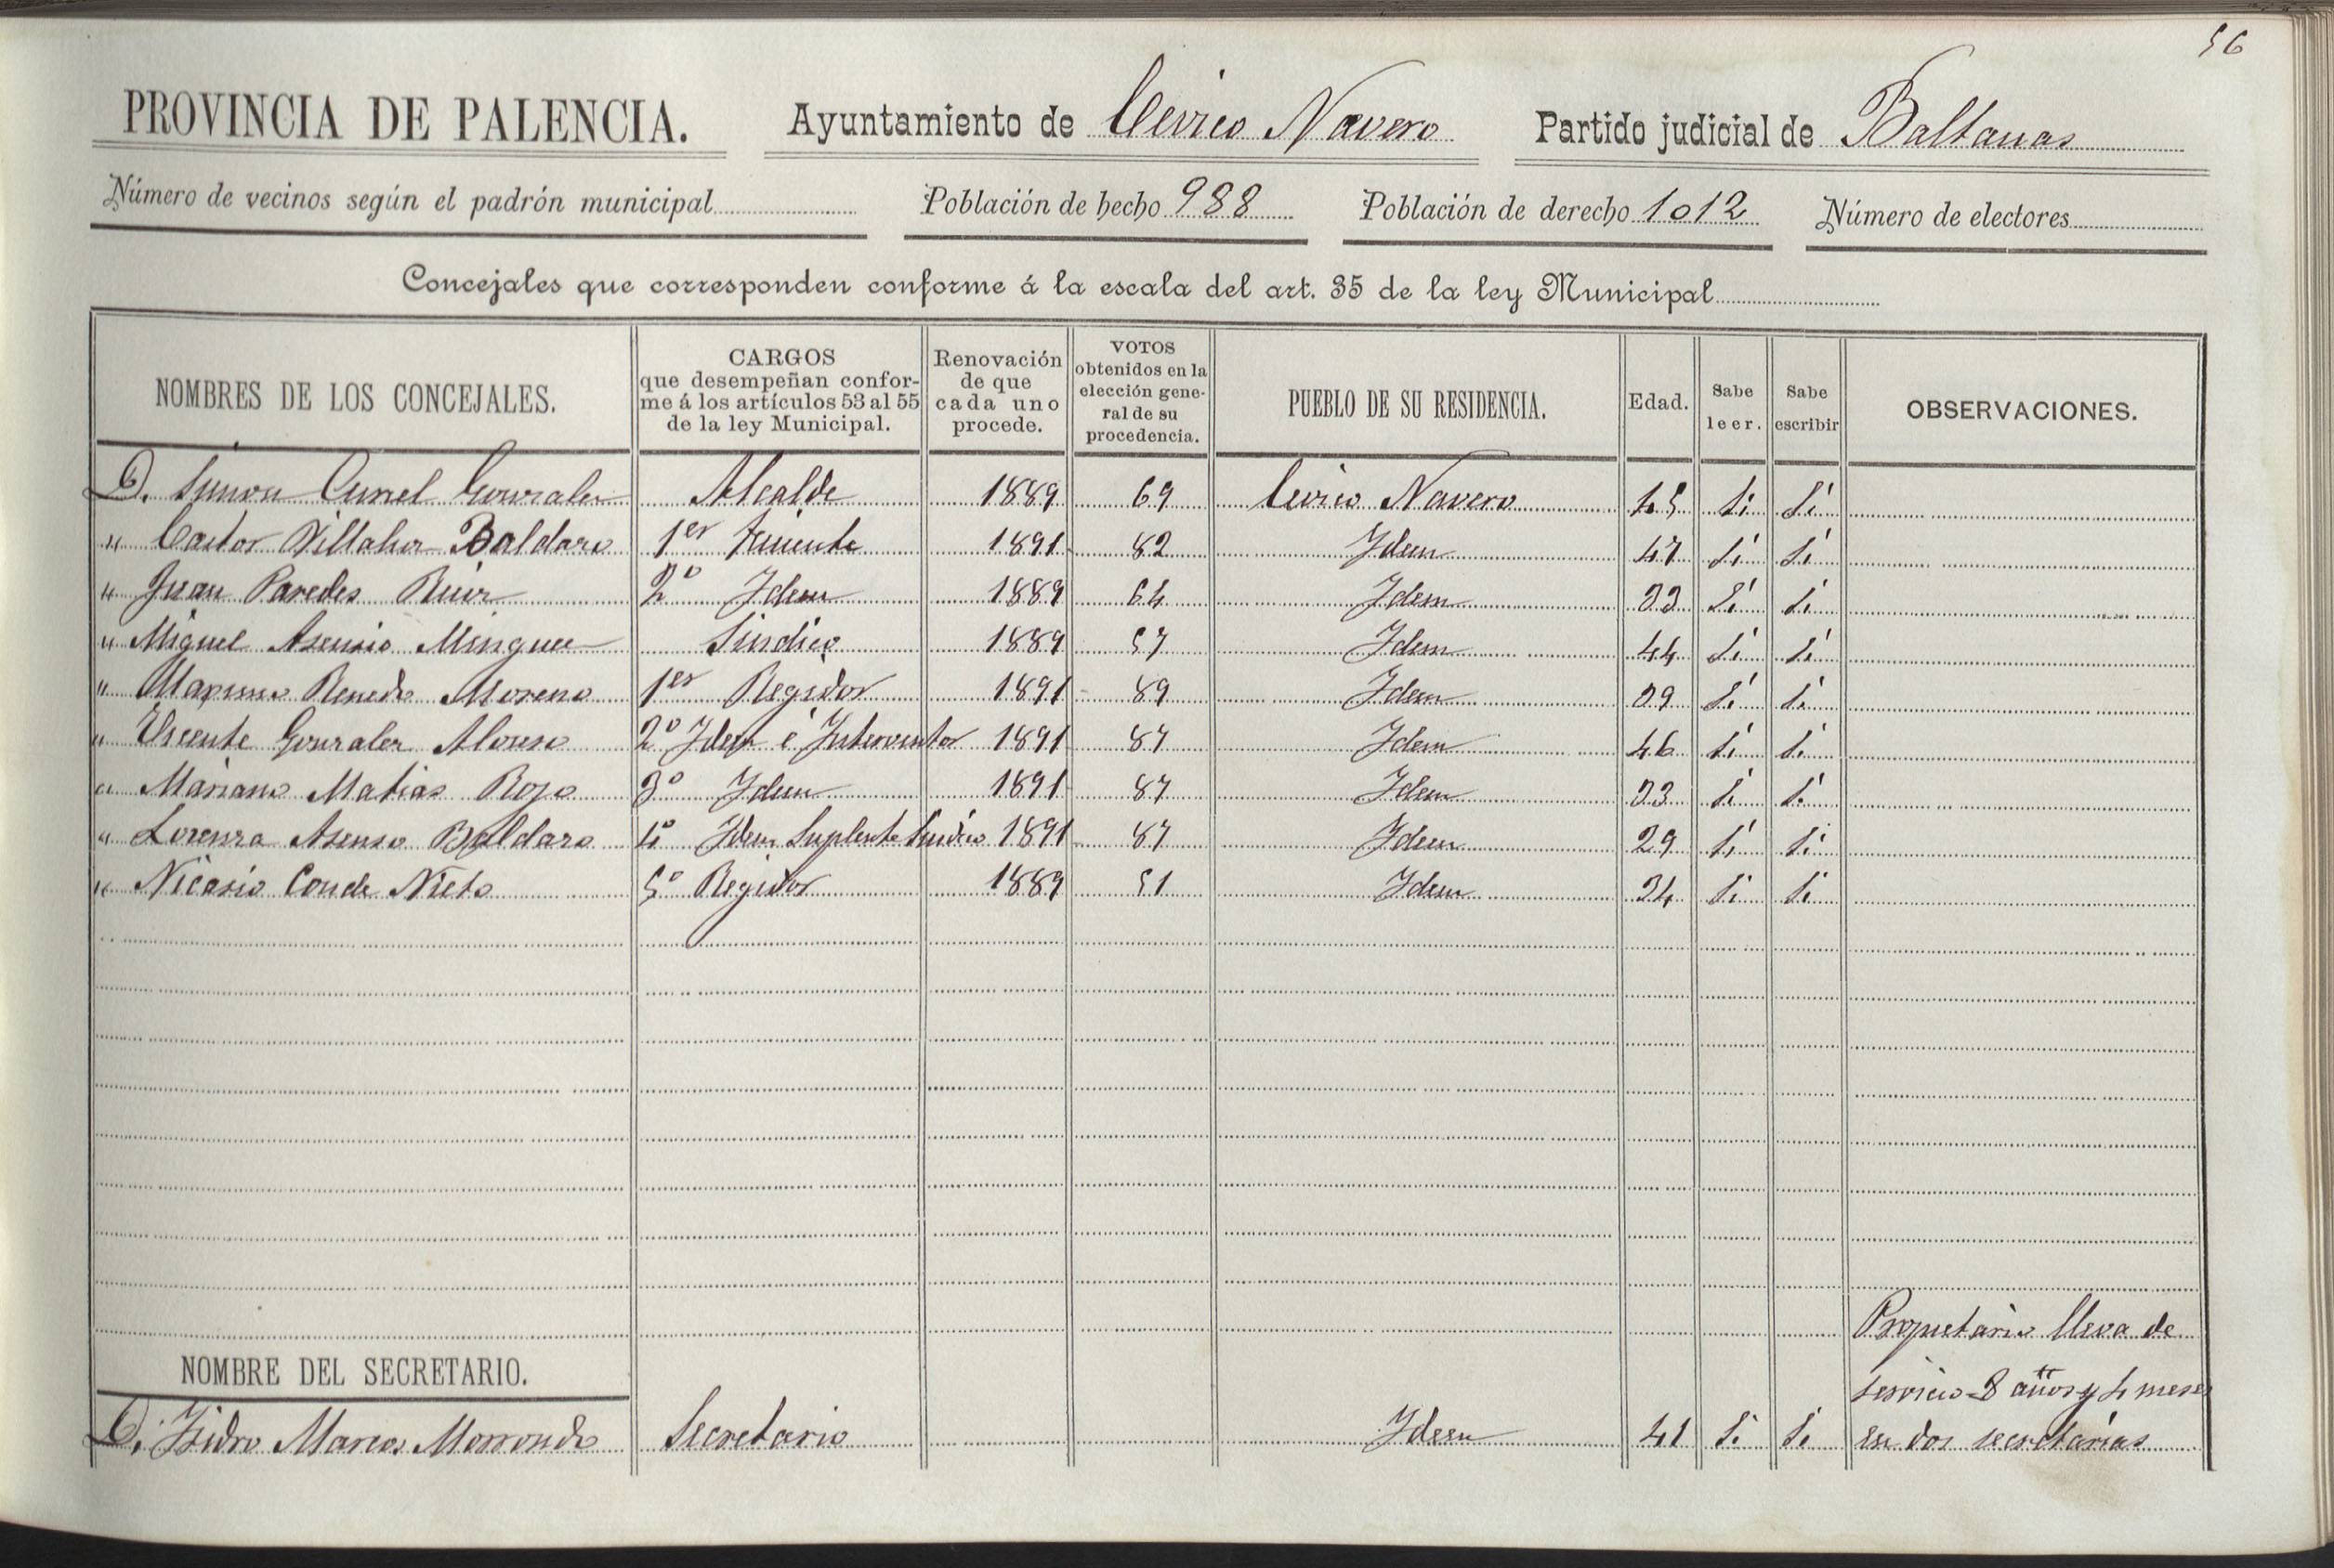 56
PROVINCIA DE PALENCIA. Ayuntamiento de Cevico Navero Partido judicial de Baltanas
Número de vecinos según el padrón municipal Población de hecho 988 Población de derecho 1012 Número de electores
Concejales que corresponden conforme á la escala del art. 35 de la ley Municipal
NOMBRES DE LOS CONCEJALES. CARGOS que desempeñan conforme á los artículos 53 al 55 de la ley Municipal. Renovación de que cada uno procede. VOTOS obtenidos en la elección general de su procedencia. PUEBLO DE SU RESIDENCIA. Edad. Sabe leer. Sabe escribir OBSERVACIONES.
D. Simon Curiel Gonzalez Alcalde 1889 69 Cevico Navero 45 Si Si
" Castor Villahoz Baldazo 1er Teniente 1891 82 Idem 47 Si Si
" Juan Paredes Ruiz 2º Idem 1889 64 Idem 33 Si Si
" Miguel Asensio Minguez Sindico 1889 57 Idem 44 Si Si
" Maximo Renedo Moreno 1er Regidor 1891 89 Idem 39 Si Si
" Vicente Gonzalez Alonso 2º Idem é Interventor 1891 87 Idem 46 Si Si
" Mariano Matias Rojo 3º Idem 1891 87 Idem 33 Si Si
" Lorenzo Asenso Baldazo 4º Idem Suplente Sindico 1891 87 Idem 29 Si Si
" Nicasio Conde Nieto 5º Regidor 1889 51 Idem 34 Si Si
NOMBRE DEL SECRETARIO.
D. Isidro Marcos Morrondo Secretario Idem 41 Si Si Propietario lleva de
servicio 8 años y 4 meses
en dos secretarías